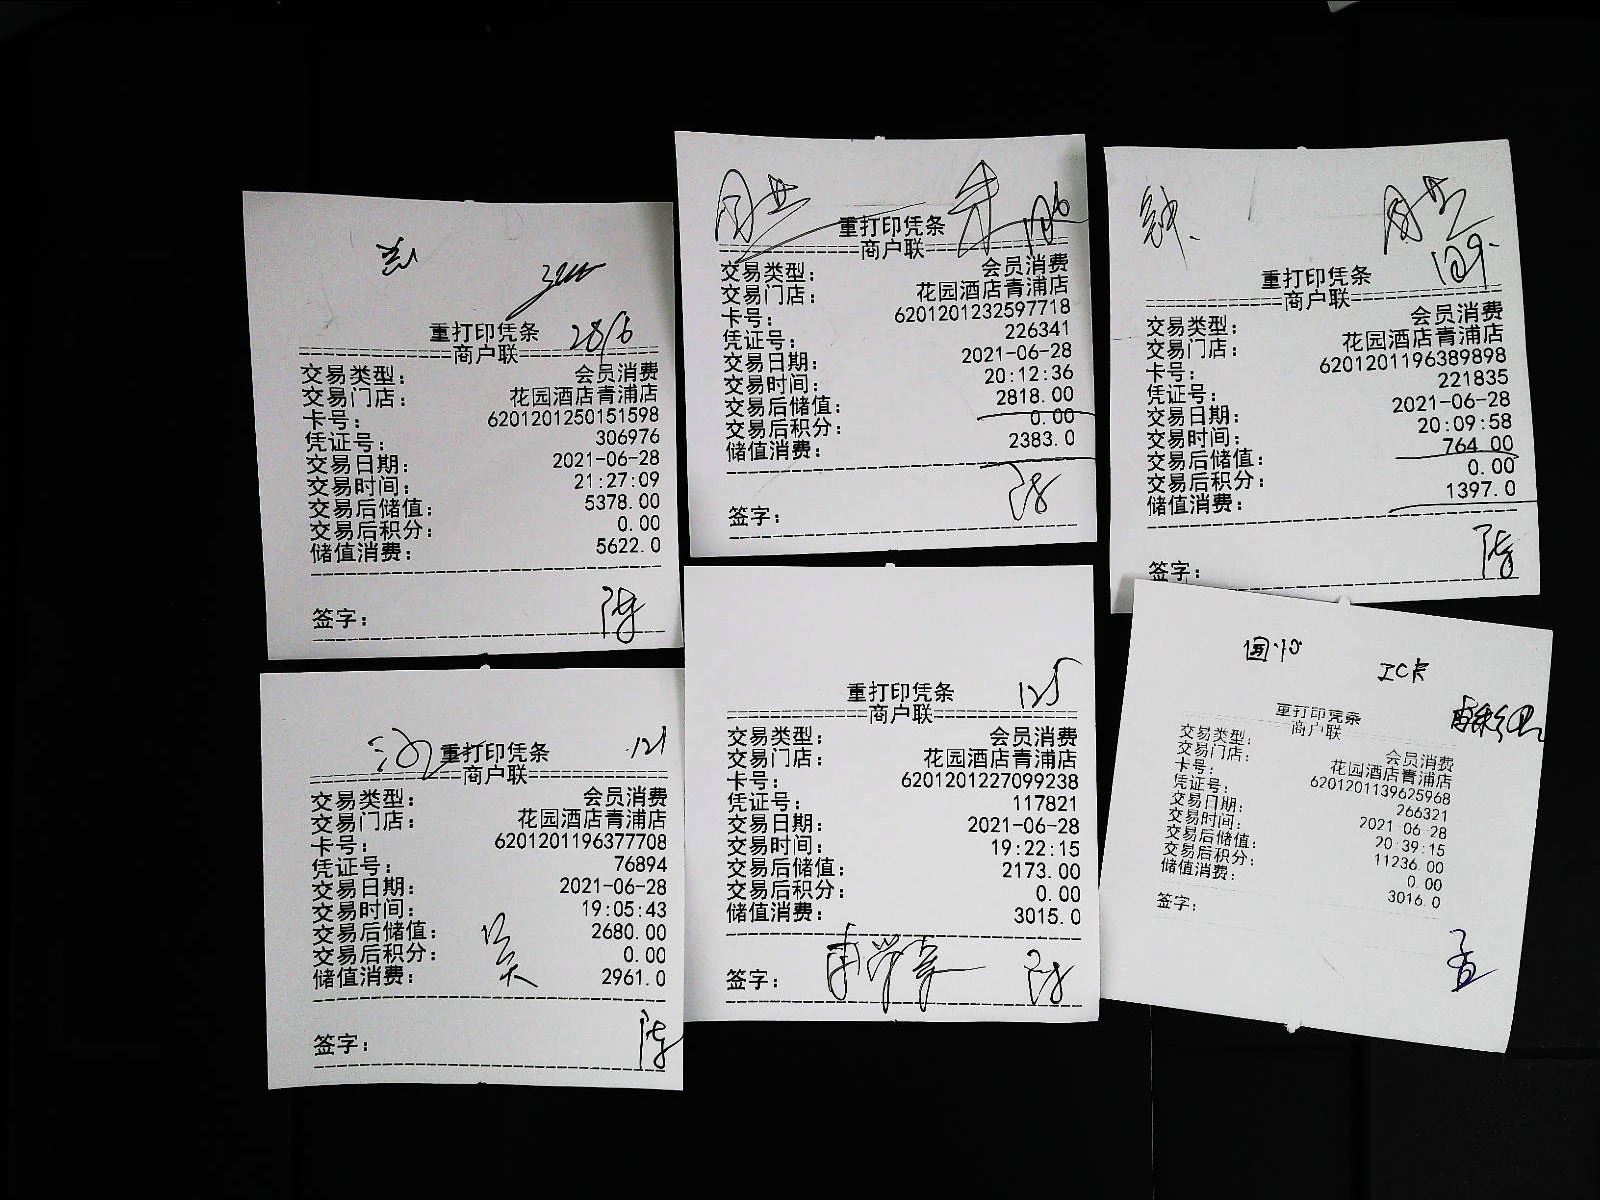 28/6
重打印凭条
商户联
交易类型： 会员消费
交易门店： 花园酒店青浦店
卡号： 6201201250151598
凭证号： 306976
交易日期： 2021-06-28
交易时间： 21:27:09
交易后储值： 5378.00
交易后积分： 0.00
储值消费： 5622.0
签字：
重打印凭条
商户联
交易类型： 会员消费
交易门店： 花园酒店青浦店
卡号： 6201201232597718
凭证号： 226341
交易日期： 2021-06-28
交易时间： 20:12:36
交易后储值： 2818.00
交易后积分： 0.00
储值消费： 2383.0
签字：
重打印凭条
商户联
交易类型： 会员消费
交易门店： 花园酒店青浦店
卡号： 6201201196389898
凭证号： 221835
交易日期： 2021-06-28
交易时间： 20:09:58
交易后储值： 764.00
交易后积分： 0.00
储值消费： 1397.0
签字：
121
重打印凭条
商户联
交易类型： 会员消费
交易门店： 花园酒店青浦店
卡号： 6201201196377708
凭证号： 76894
交易日期： 2021-06-28
交易时间： 19:05:43
交易后储值： 2680.00
交易后积分： 0.00
储值消费： 2961.0
签字：
125
重打印凭条
商户联
交易类型： 会员消费
交易门店： 花园酒店青浦店
卡号： 6201201227099238
凭证号： 117821
交易日期： 2021-06-28
交易时间： 19:22:15
交易后储值： 2173.00
交易后积分： 0.00
储值消费： 3015.0
签字：
IC卡
重打印凭条
商户联
交易类型： 会员消费
交易门店： 花园酒店青浦店
卡号： 6201201139625968
凭证号： 266321
交易日期： 2021-06-28
交易时间： 20:39:15
交易后储值： 11236.00
交易后积分： 0.00
储值消费： 3016.0
签字：
孟